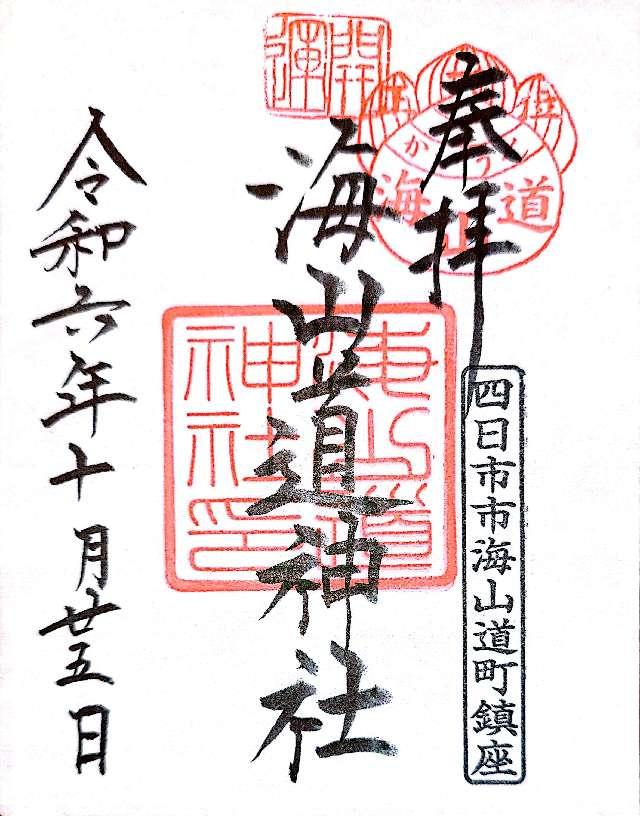 開運
奉拝
四日市市海山道町鎮座
海山道
海山道神社
海山道神社印
令和六年十月廿五日